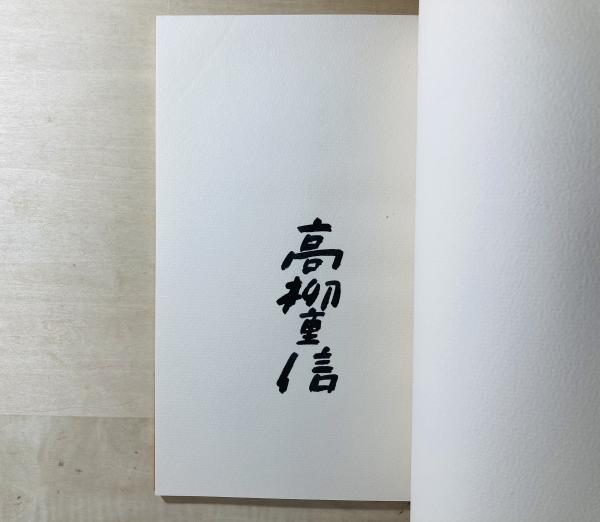 高柳重信